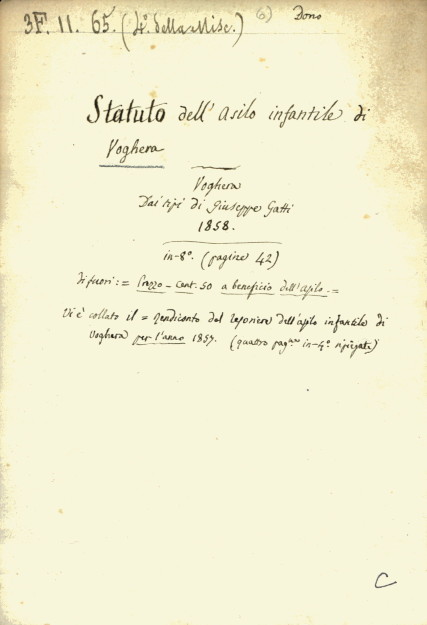 3F. 11. 65. (4º. della Misc.)
(6)
Dono
Statuto dell'asilo infantile di
Voghera
Voghera
Dai tipi di Giuseppe Gatti
1858.
in-8º. (pagine 42)
Di fuori: = Prezzo - Cent. 50 a beneficio dell'asilo. =
Vi è collato il = Rendiconto del tesoriere dell'asilo infantile di
Voghera per l'anno 1857. (quattro pag.ne in-4º ripiegate)
C